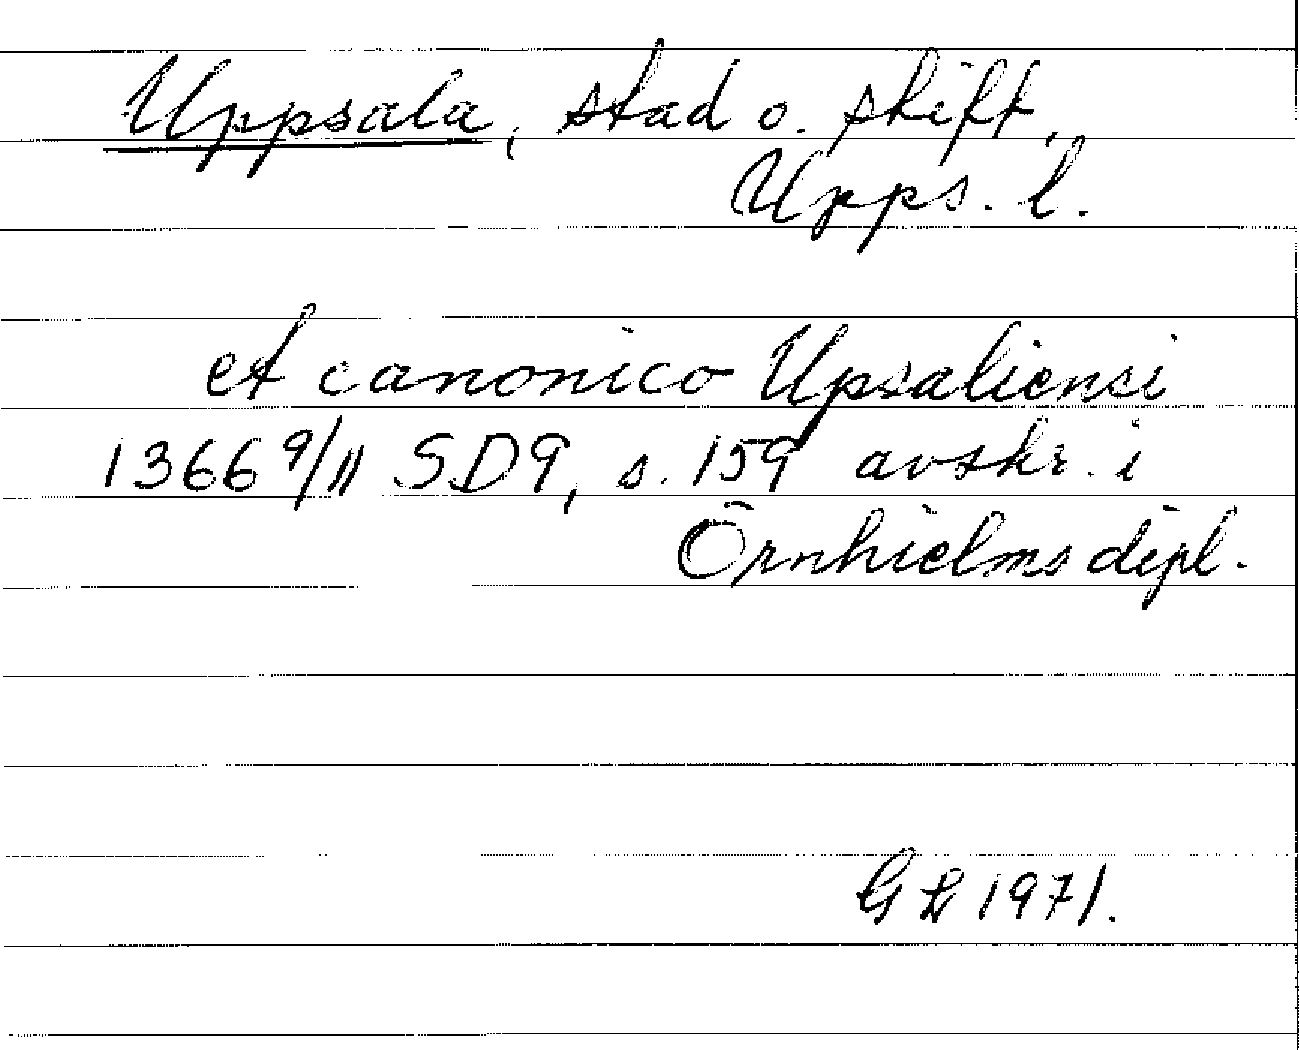 Uppsala, stad o. stift,
Upps. l.
et canonico Upsaliensi
1366 9/11 SD9, s. 159 avskr. i
Örnhielms dipl.
GL 1971.